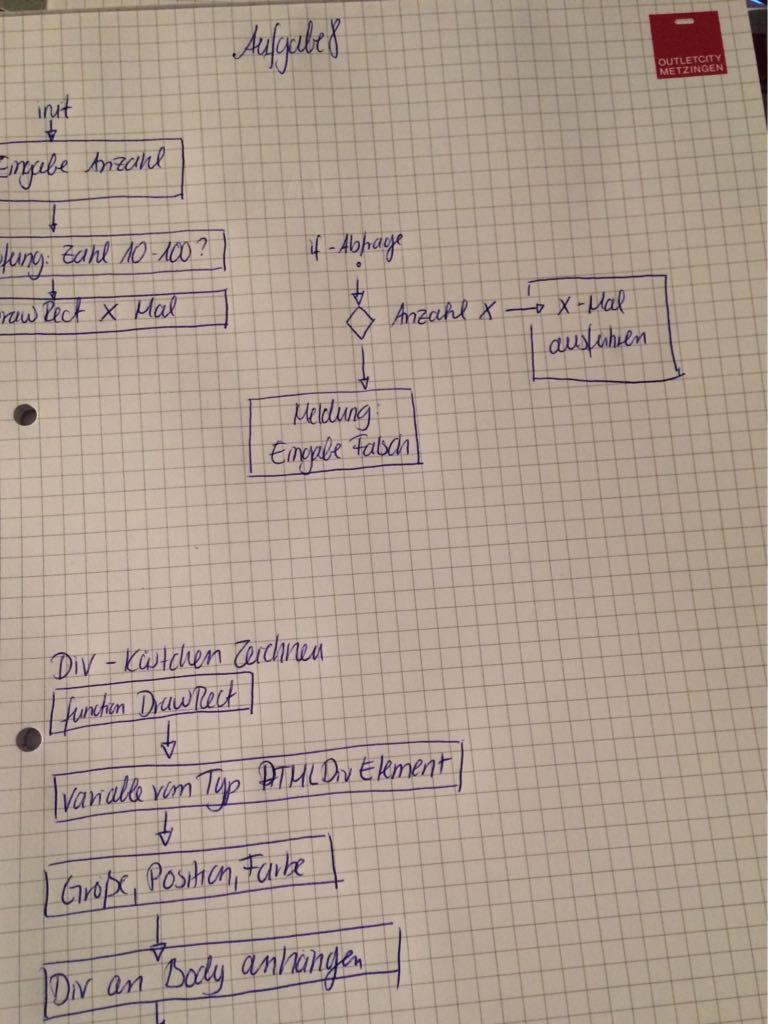 Aufgabe 8
OUTLETCITY
METZINGEN
init
Eingabe Anzahl
fung: Zahl 10-100?
rawRect X Mal
if-Abfrage
Anzahl X
X-Mal
ausführen
Meldung:
Eingabe Falsch
Div - Kästchen Zeichnen
function DrawRect
Variable vom Typ HTMLDivElement
Größe, Position, Farbe
Div an Body anhängen